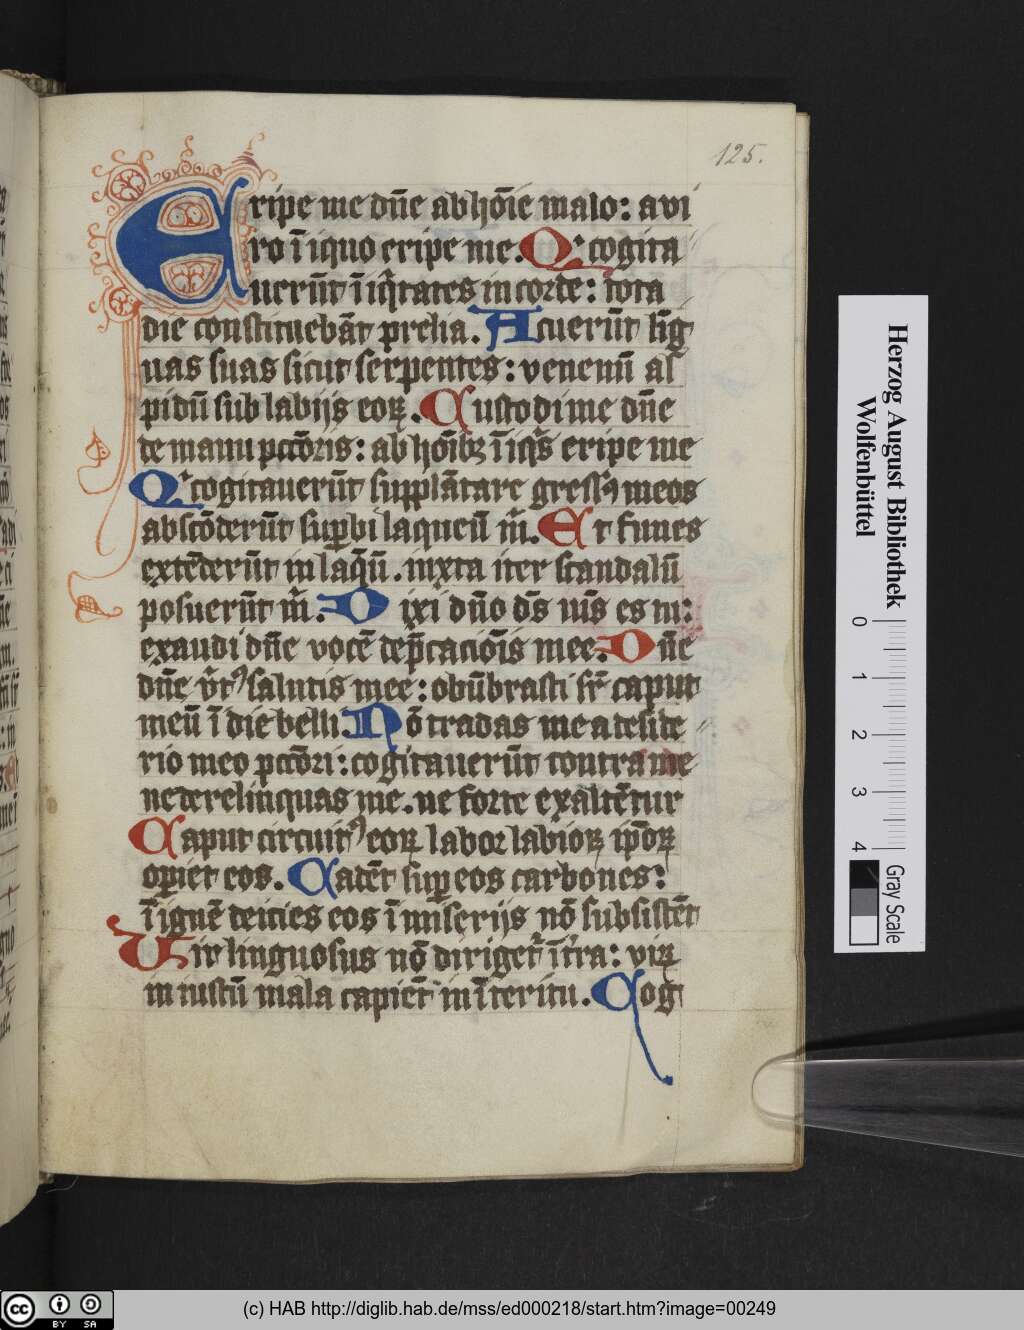 125.
Eripe me dn̄e ab hōīe malo: a vi
ro īiquo eripe me. Qͥ cogita
uerūt īiq̄tates in corde: tota
die constituebāt prelia. Acuerūt līg
uas suas sicut serpentes: venenū as
pidū sub labijs eoꝝ. Custodi me dn̄e
de manu pctōris: ab hōībꝫ īiqͥs eripe me
Qͥ cogitauerūt supplātare gressꝰ meos
abscōderūt suꝑbi laqueū m̄. Et funes
extēderūt in laq̄ū. iuxta iter scandalū
posuerūt m̄. Dixi dn̄o ds̄ ms̄ es tu:
exaudi dn̄e vocē dep̄cacōīs mee. Dn̄e
dn̄e v̄tꝰ salutis mee: obūbrasti sr̄ caput
meū ī die belli. Nō tradas me a deside
rio meo pctōri: cogitauerūt contra me
ne derelinquas me. ne forte exaltētur
Caput circuitꝰ eoꝝ labor labioꝝ ip̄oꝝ
oꝑiet eos. Cadēt suꝑ eos carbones:
ī ignē deicies eos ī miserijs nō subsistēt
Vir linguosus nō dirigetͬ ī tr̄a: viꝝ
in iustū mala capiēt in īteritu. Cog
Herzog August Bibliothek
Wolfenbüttel
0 1 2 3 4
Gray Scale
cc BY SA
(c) HAB http://diglib.hab.de/mss/ed000218/start.htm?image=00249